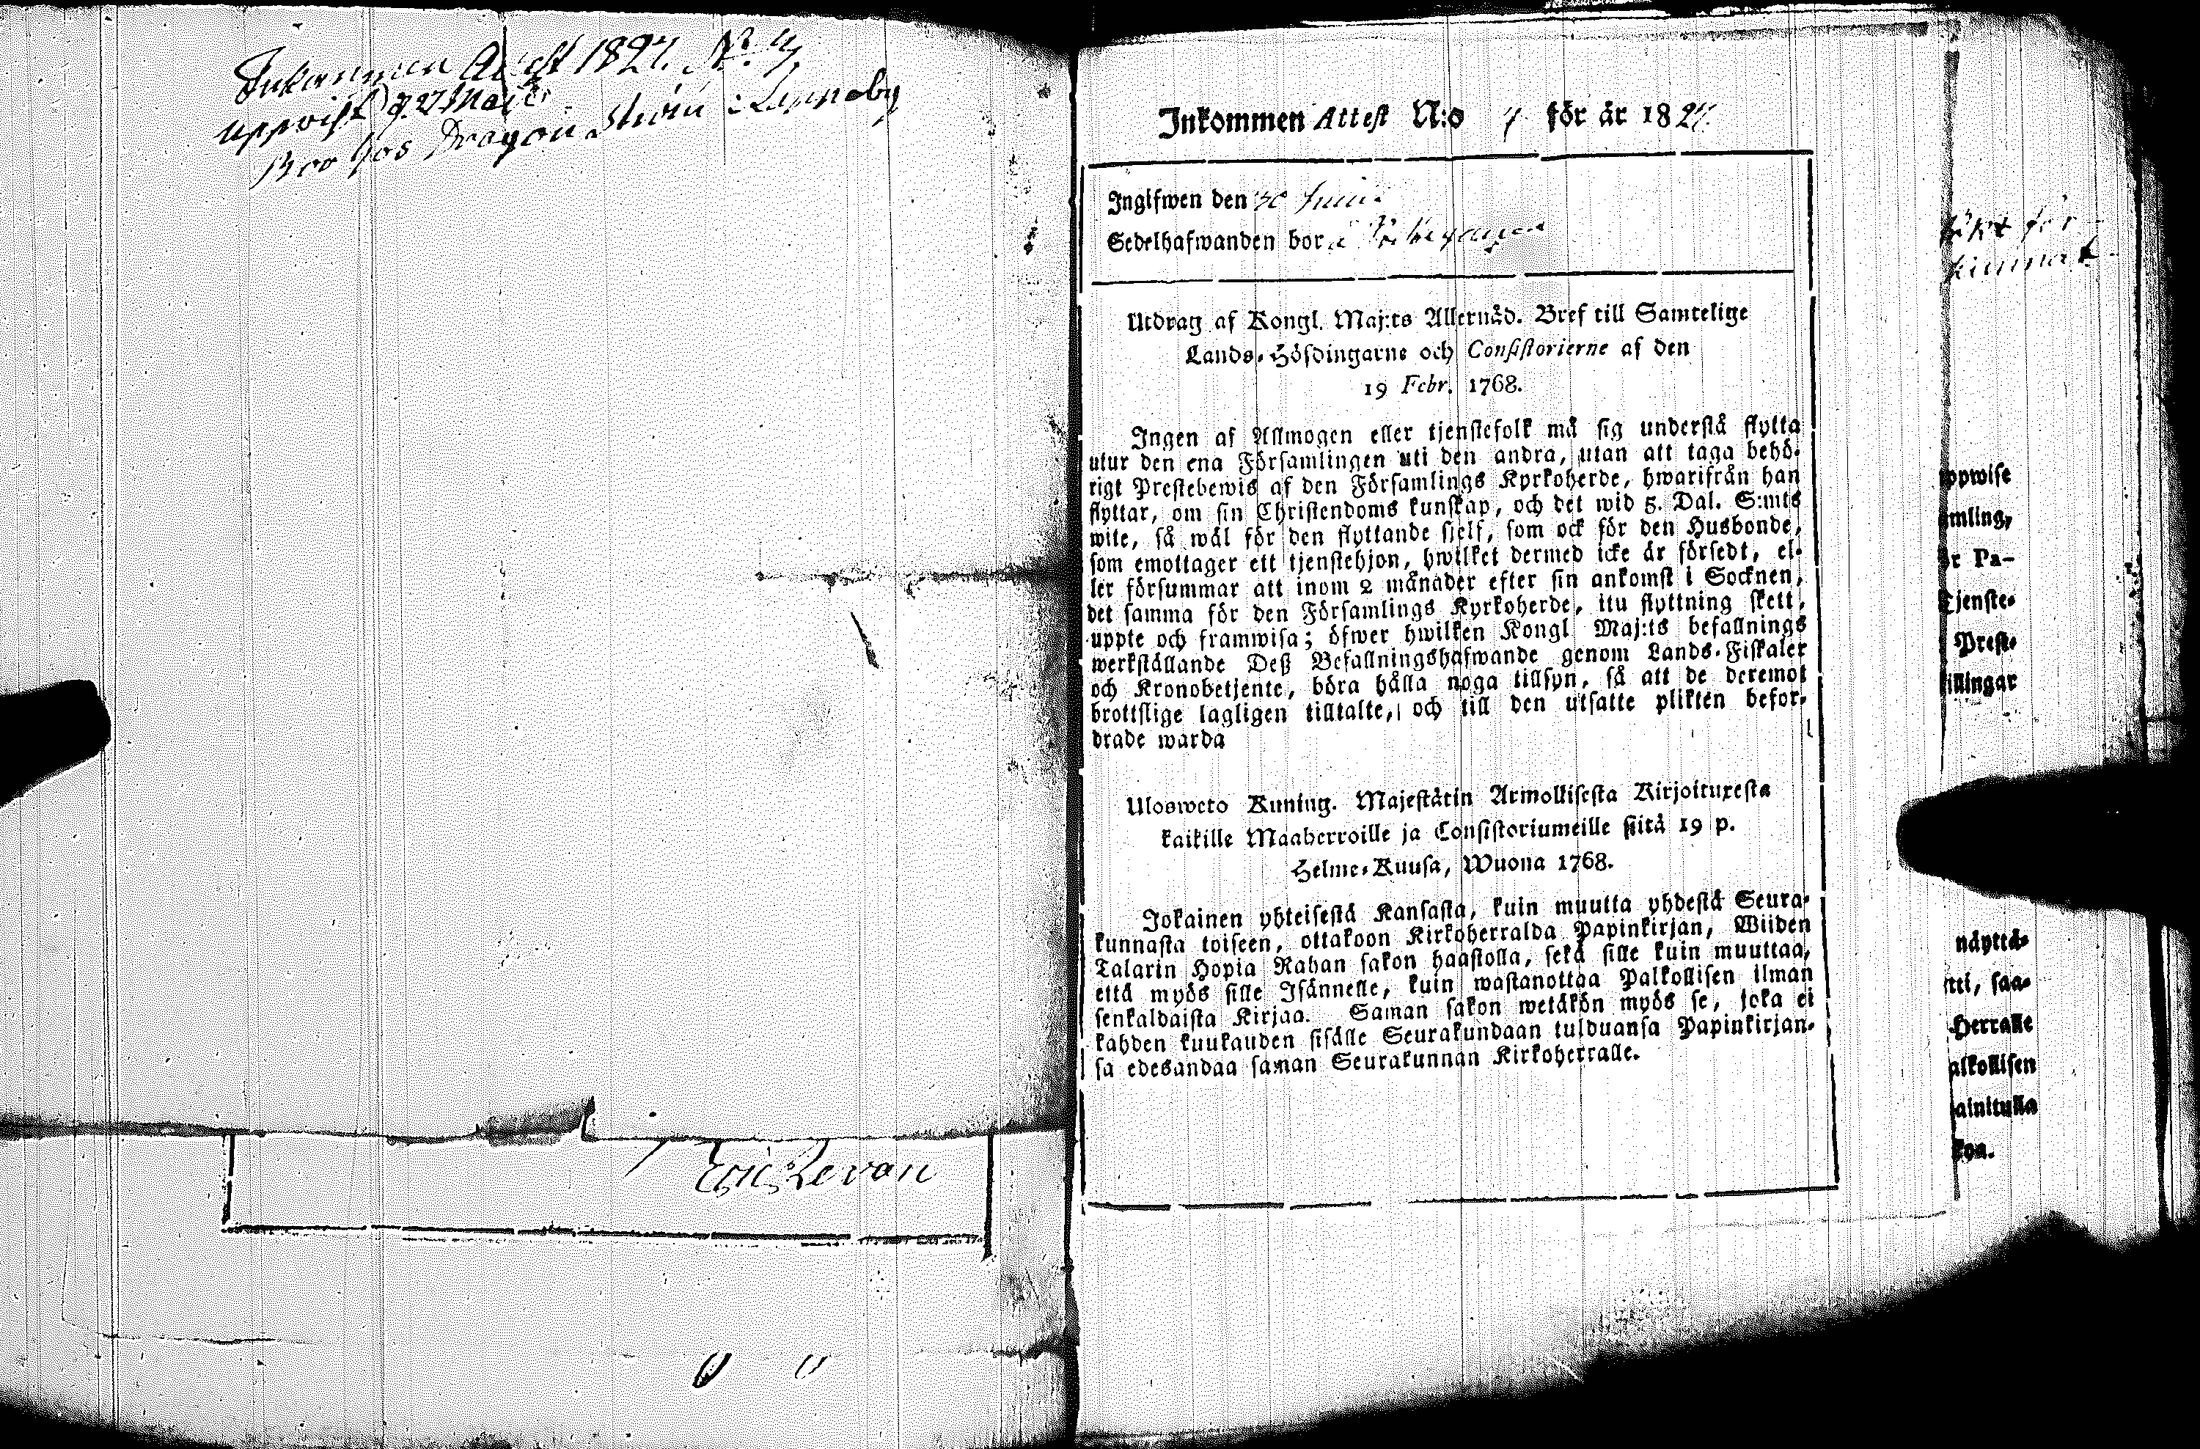 Inkommen Attest 1827. N:
uppvist d. 27 Maji
Boo hos Dragon
Eric Levon
Inkommen Attest N:o 7 för år 1827
Ingifwen den 30 Junii
Sedelhafwanden bor
Utdrag af Kongl. Maj:ts Allernåd. Bref till Samtelige
Lands-Höfdingarne och Consistorierne af den
19 Febr. 1768.
Ingen af Allmogen eller tjenstefolk må sig understå flytta
utur den ena Församlingen uti den andra, utan att taga behö-
rigt Prestebewis af den Församlings Kyrkoherde, hwarifrån han
flyttar, om sin Christendoms kunskap, och det wid 5. Dal. S:mts
wite, så wäl för den flyttande sjelf, som ock för den Husbonde,
som emottager ett tjenstehjon, hwilket dermed icke är försedt, el-
ler försummar att inom 2 månader efter sin ankomst i Socknen,
det samma för den Församlings Kyrkoherde, itu flyttning skett,
uppte och framwisa; öfwer hwilken Kongl Maj:ts befallnings
werkställande Deß Befallningshafwande genom Lands-Fiskaler
och Kronobetjente, böra hålla noga tillsyn, så att de deremot
brottslige lagligen tilltalte, och till den utsatte plikten befor-
drade warda
Ulosweto Kuning. Majestätin Armollisesta Kirjoituxesta
kaikille Maaherroille ja Consistoriumeille siitä 19 p.
Helme-Kuusa, Wuona 1768.
Jokainen yhteisestä Kansasta, kuin muutta yhdestä Seura-
kunnasta toiseen, ottakoon Kirkoherralda Papinkirjan, Wiiden
Talarin Hopia Rahan sakon haastolla, sekä sille kuin muuttaa,
että myös sille Isännelle, kuin wastanottaa Palkollisen ilman
senkaldaista Kirjaa. Saman sakon wetäkön myös se, joka ei
kahden kuukauden sisälle Seurakundaan tulduansa Papinkirjan-
sa edesandaa saman Seurakunnan Kirkoherralle.
ppwise
mling,
r Pa-
Tjenste-
Prest-
illingar
näyttä-
tti, saa-
Herralle
alkollisen
ainitulla
koa.